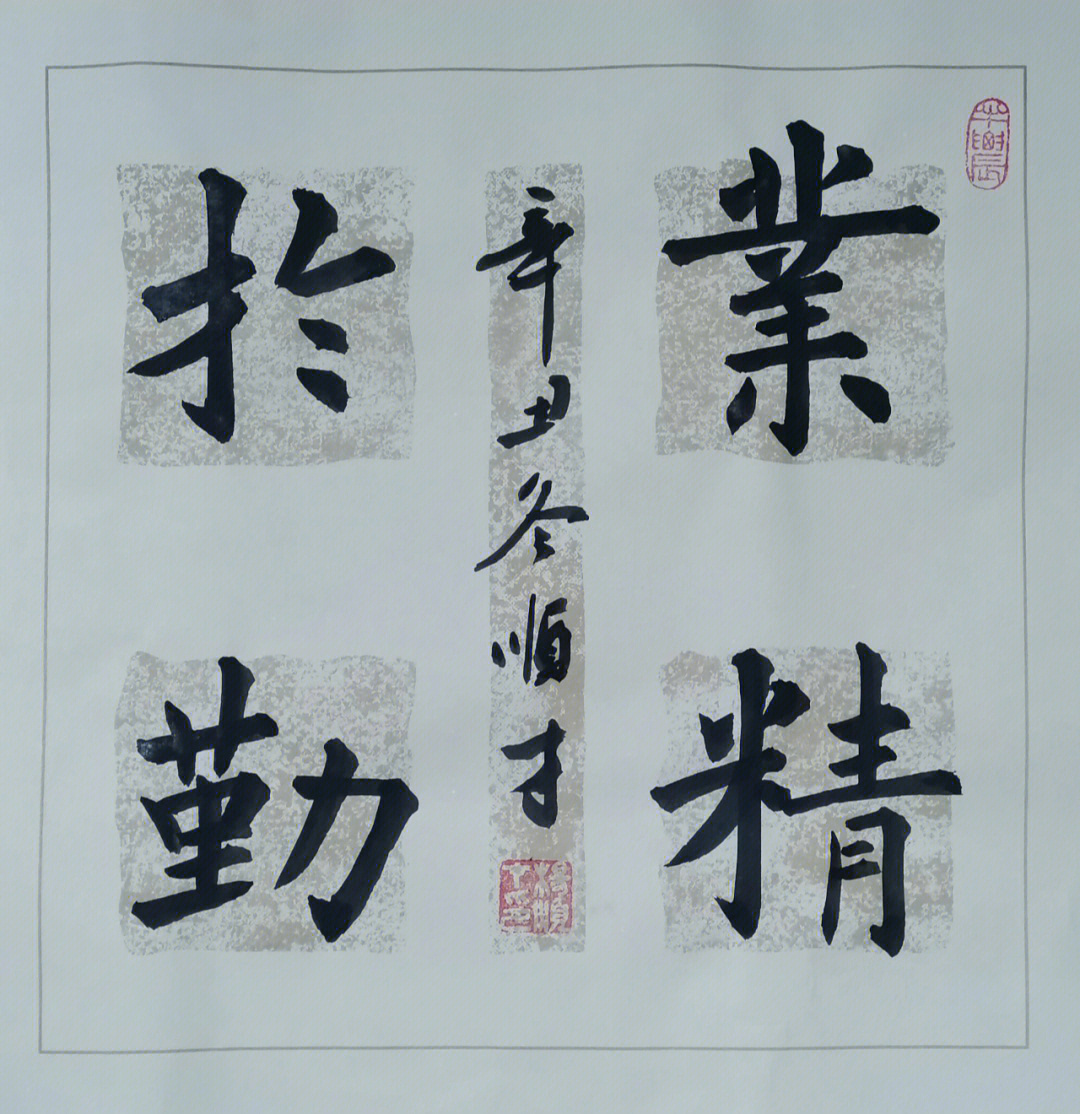 業精
於勤
辛丑冬順才